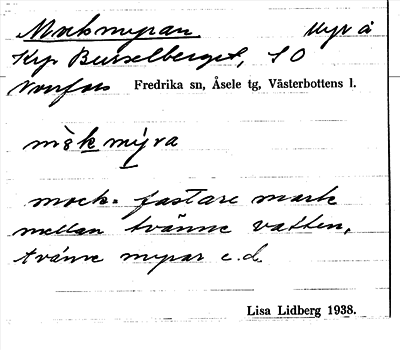 Mockmyran Myr å
Krp Busselberget, SO
Norrfors Fredrika sn, Åsele tg, Västerbottens l.
mòkmýra
mock = fastare mark
mellan tvänne vatten,
tvänne myrar e.d.
Lisa Lidberg 1938.